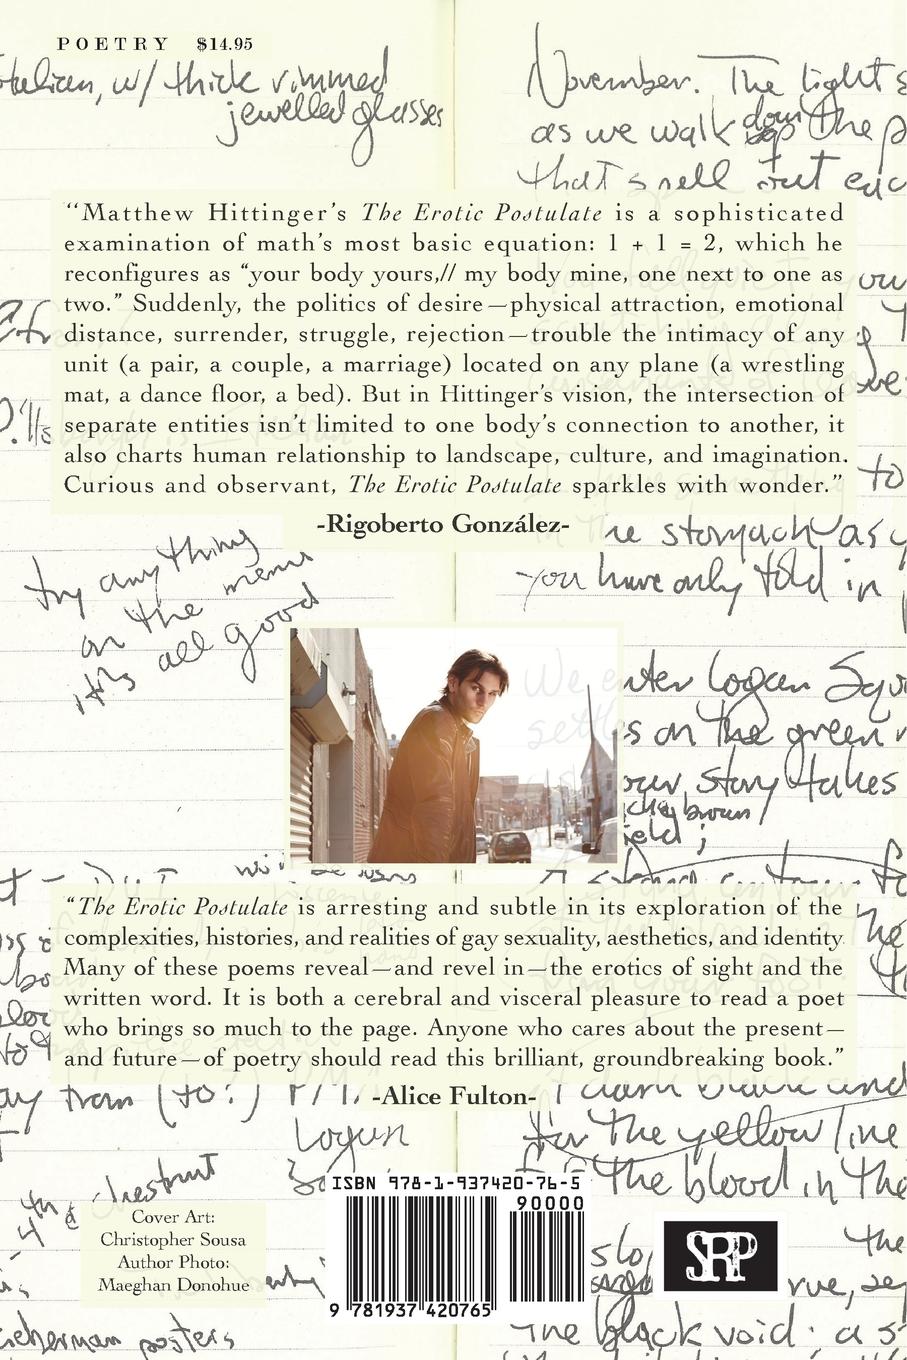 POETRY $14.95
w/ thick rimmed
jewelled glasses
November. The light
as we walk down the
that spell out
“Matthew Hittinger’s The Erotic Postulate is a sophisticated
examination of math’s most basic equation: 1 + 1 = 2, which he
reconfigures as “your body yours,// my body mine, one next to one as
two.” Suddenly, the politics of desire—physical attraction, emotional
distance, surrender, struggle, rejection—trouble the intimacy of any
unit (a pair, a couple, a marriage) located on any plane (a wrestling
mat, a dance floor, a bed). But in Hittinger’s vision, the intersection of
separate entities isn’t limited to one body’s connection to another, it
also charts human relationship to landscape, culture, and imagination.
Curious and observant, The Erotic Postulate sparkles with wonder.”
-Rigoberto González-
to
the stomach as
you have only told in
try anything
on the menu
it's all good
We enter Logan
settles on the green
our story takes
“The Erotic Postulate is arresting and subtle in its exploration of the
complexities, histories, and realities of gay sexuality, aesthetics, and identity.
Many of these poems reveal—and revel in—the erotics of sight and the
written word. It is both a cerebral and visceral pleasure to read a poet
who brings so much to the page. Anyone who cares about the present—
and future—of poetry should read this brilliant, groundbreaking book.”
-Alice Fulton-
from (to?)
dark black and
Logan
for the yellow line
the blood in the
4th & chestnut
Cover Art:
Christopher Sousa
Author Photo:
Maeghan Donohue
ISBN 978-1-937420-76-5
90000
9 781937 420765
SRP
the
posters
the black void: a